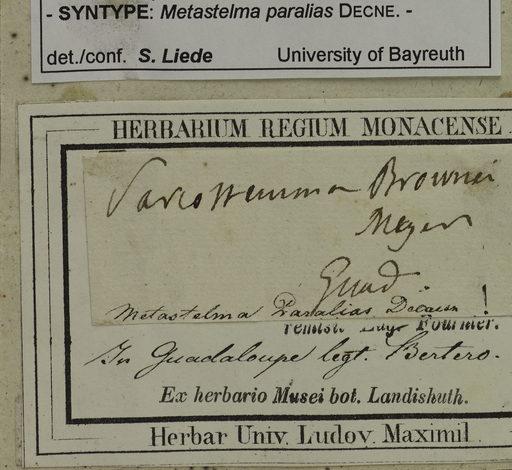 - SYNTYPE: Metastelma paralias DECNE. -
det./conf. S. Liede University of Bayreuth
HERBARIUM REGIUM MONACENSE
Sarcostemma Brownei
Meyer
Guad
Metastelma Paralias Decaisn !
Fournier.
In Guadaloupe legt. Bertero.
Ex herbario Musei bot. Landishuth.
Herbar Univ. Ludov. Maximil